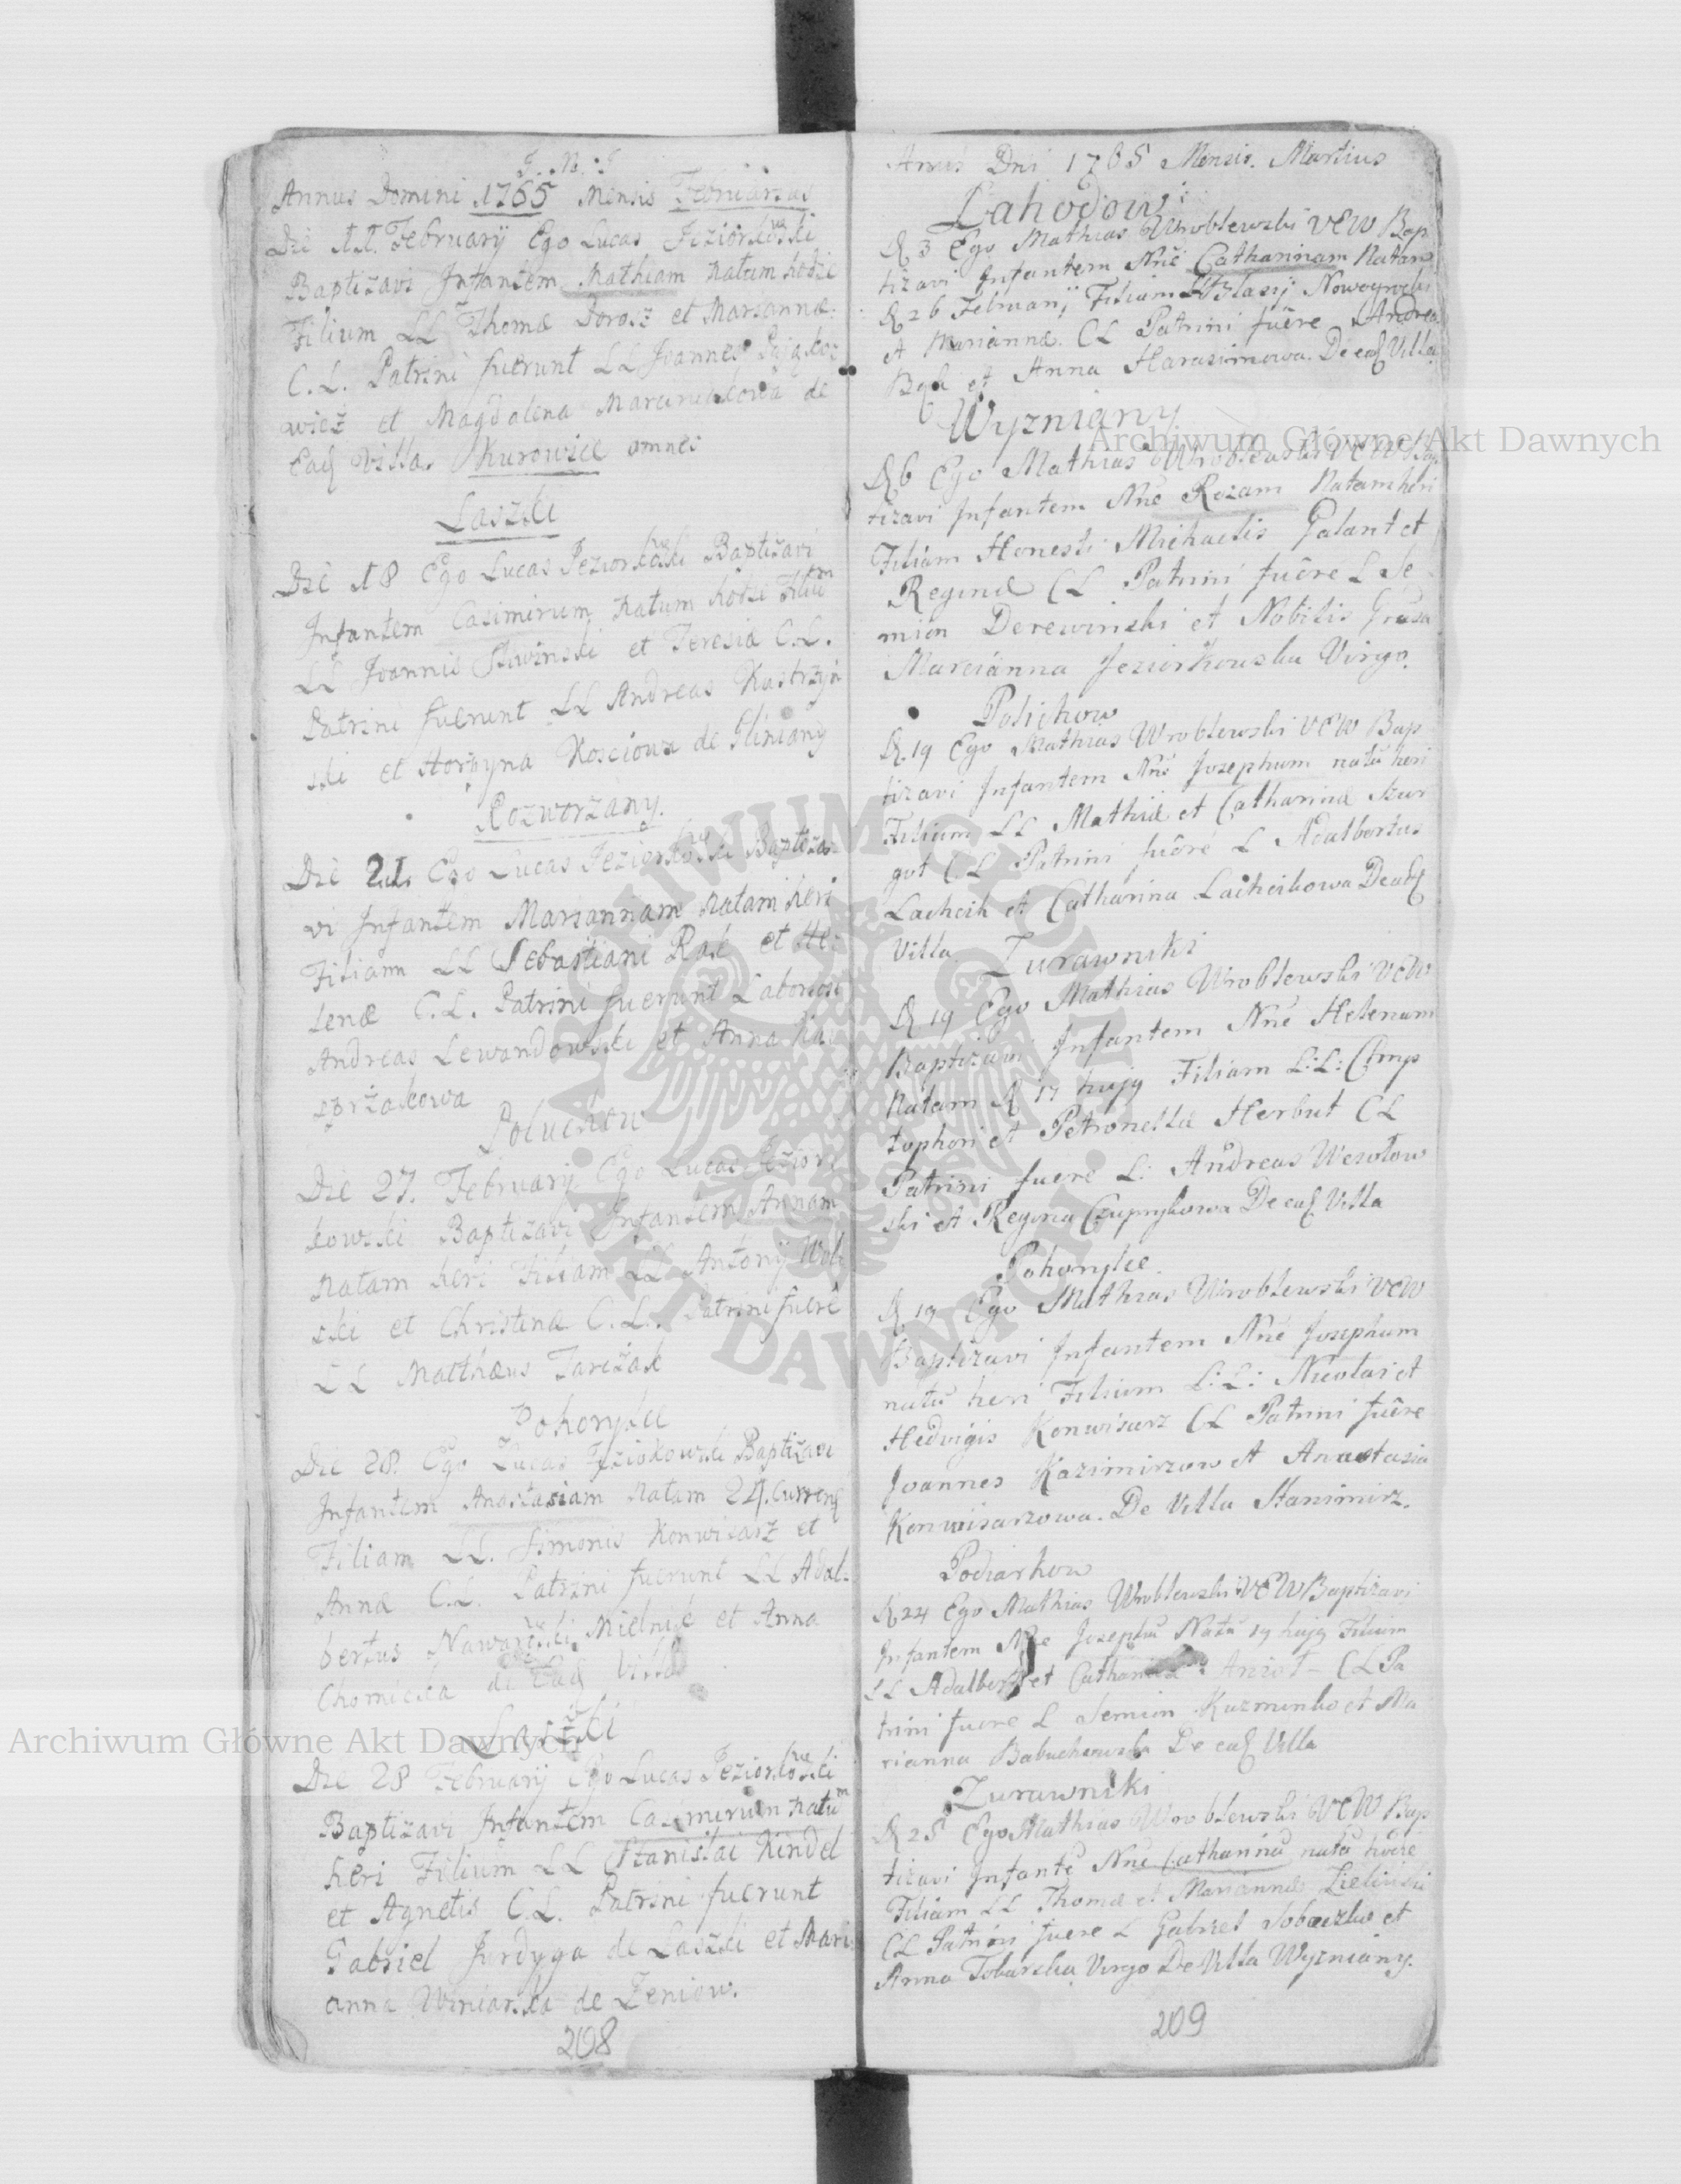 J. M. J
Annus Domini 1765 Mensis Februarius
Die 11. February Ego Lucas Jeziorkowski
Baptizavi Infantem Mathiam natum hodie
Filium LL Thomæ Dorosz et Mariannæ
C. L. Patrini fuerunt LL Joannes
wicz et Magdalena de
Eadȝ Villa Kurowice omnes
Laszki
Die 18 Ego Lucas Jeziorkowski Baptizavi
Infantem Casimirum natum hodie Filium
LL Joannis Sliwinski et Teresiæ C.L.
Patrini fuerunt LL Andreas Kastrzyń
ski et Horpyna Kosciowa de Gliniany
Rozworzany.
Die 21. Ego Lucas Jeziorkowski Baptiza
vi Infantem Mariannam natam heri
Filiam LL Sebastiani Rak et He
lenæ C.L. Patrini fuerunt Laboriosi
Andreas Lewandowski et Anna Ka
Poluchow
Die 27. February Ego Lucas Jezior
kowski Baptizavi Infantem Annam
natam heri Filiam LL Antonij Wol
ski et Christinæ C.L. Patrini fuere
LL Matthæus Jarczak
Pohorylce
Die 28. Ego Lucas Jeziorkowski Baptizavi
Infantem Anastasiam natam 24. Currenȝ
Filiam LL. Simonis Konwisarz et
Annæ C.L. Patrini fuerunt LL Adal
bertus Nawarski Mielnik et Anna
Chomicka de Eadȝ Villa
Laszki
Die 28 February Ego Lucas Jeziorkowski
Baptizavi Infantem Casimirum natum
heri Filium LL Stanislai Kindel
et Agnetis C.L. Patrini fuerunt
Gabriel Jurdyga de Laszki et Mari
anna Winiarska de Zeniow.
208
Annus Dni 1765 Mensis. Martius
Lahodow
D 3 Ego Mathias Wroblewski VCW Bap
tizavi Infantem Nne Catharinam Natam
D 26 Februarij Filiam LL Blasij
et Mariannæ. CL Patrini fuere Andreas
Bąk et Anna Harasimowa. De eadȝ Villa
Wyzniany
D 6 Ego Mathias Wroblewski VCW Bap
tizavi Infantem Nne Rozam Natam heri
Filiam Honesti Michaelis Galant et
Reginæ CL Patrini fuere L Se
mion Derewinski et Nobilis Grsa
Marcianna Jeziorkowska Virgo.
Poluchow
D. 19 Ego Mathias Wroblewski VCW Bap
tizavi Infantem Nne Josephum natũ heri
Filium LL Mathiæ et Catharinæ Szur
got CL Patrini fuere L Adalbertus
Lachcik et Catharina Lachcikowa De eadȝ
Villa.
Zurawniki
D 19 Ego Mathias Wroblewski VCW
Baptizavi Infantem Nne Helenam
Natam D 17 hujȝ Filiam L:L: Chrys
tophori et Petronellæ Herbut CL
Patrini fuere L: Andreas Wesołow
ski et Regina Czuprykowa De eadȝ Villa
Pohorylce
D. 19 Ego Mathias Wroblewski VCW
Baptizavi Infantem Nne Josephum
natũ heri Filium L:L: Nicolai et
Hedvigis Konwisarz CL Patrini fuere
Joannes Kazimirzow et Anastasia
Konwisarzowa. De Villa Hanimirz.
Podiarkow
D 24 Ego Mathias Wroblewski VCW Baptizavi
Infantem Nne Josephũ Natũ 19 hujȝ Filium
LL Adalberti et Catharinæ Aniot CL Pa
trini fuere L Semion Kuzminko et Ma
rianna Babuchowska De eadȝ Villa
Zurawniki
D 25 Ego Mathias Wroblewski VCW Bap
tizavi Infantẽ Nne Catharinã natã hodie
Filiam LL Thomæ et Mariannæ Zielinski
CL Patrini fuere L Gabriel et
Anna Tokarska Virgo De Villa Wyzniany.
209
Archiwum Główne Akt Dawnych
Archiwum Główne Akt Dawnych
ARCHIWUM GŁÓWNE
AKT DAWNYCH